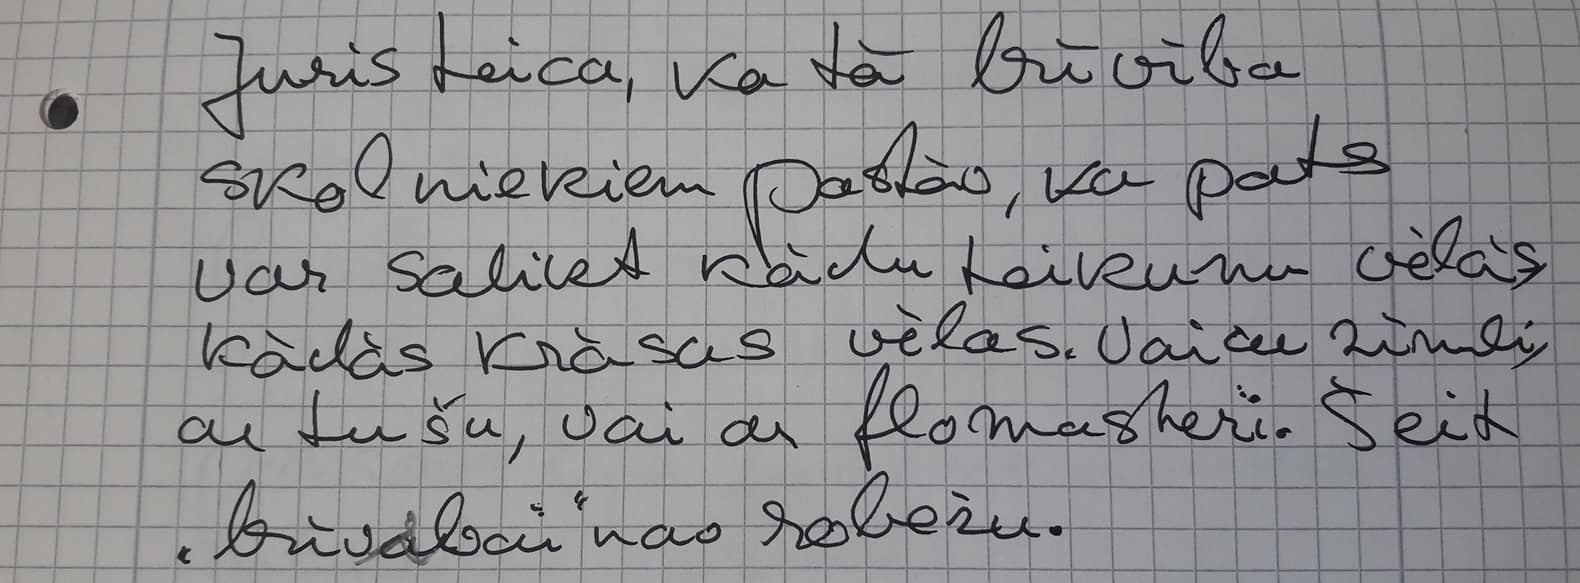 Juris teica, ka tā brīvība
skolniekiem pastāv, ka pats
var salikt kādu teikumu vēlas,
kādās krāsās vēlas. Vai ar zīmuli,
ar tušu, vai ar flomasteri. Šeit
"brīvībai" nav robežu.